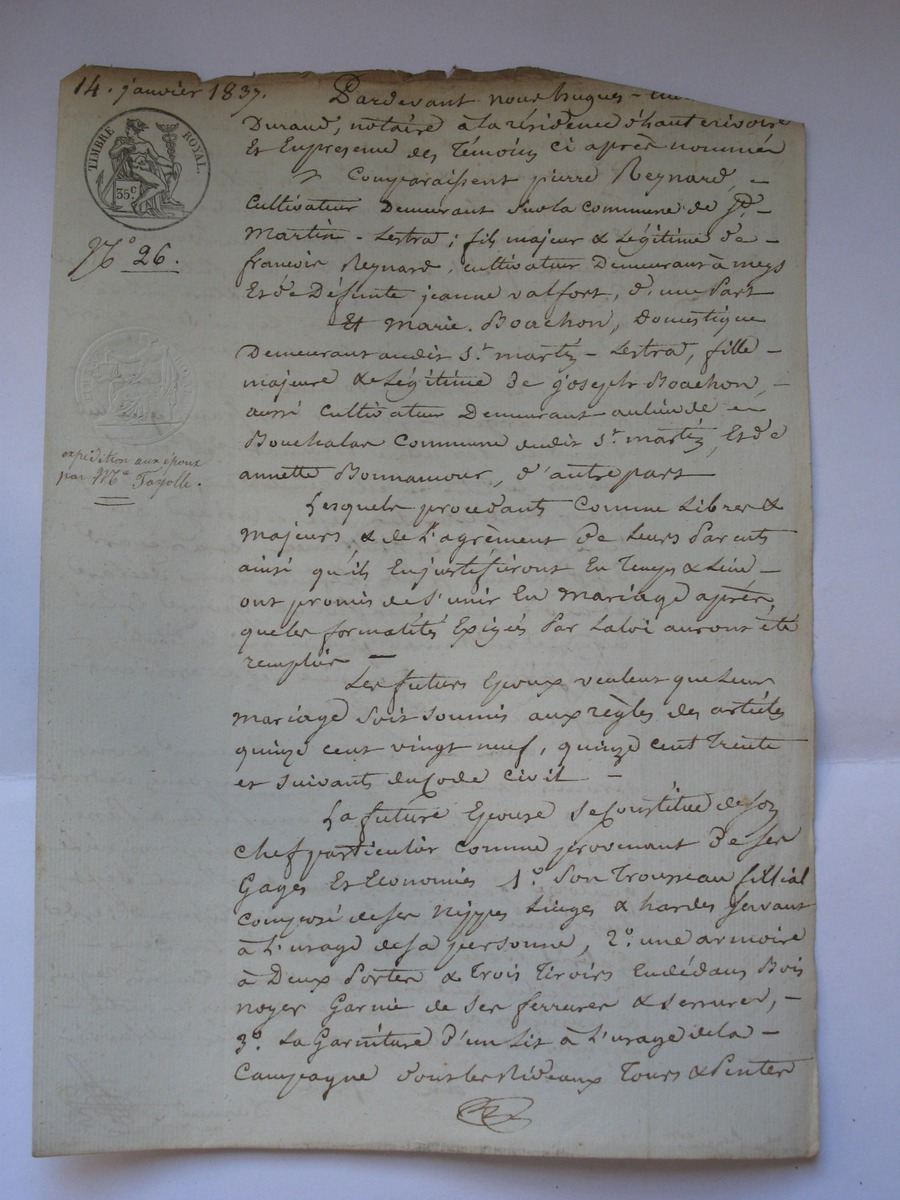 14. janvier 1837.
TIMBRE ROYAL.
35 c
N.º 26.
expédition aux époux
par Mᵉ Fayolle.
Pardevant nous hugues-
Durand, notaire à la résidence d'hauterivoire
Et Enpresence des Témoins ci après nommés
Comparaissent pierre Reynard, -
Cultivateur Demeurant sur la commune de St-
Martin - Lestra, fils majeur & Légitime de -
francois Reynard, cultivateur Demeurant à meys
Et de Défunte jeanne valfort, d'une Part
Et marie Boachon, Domestique
Demeurant audit St martin - Lestra, fille -
majeure & Légitime de joseph Boachon, -
aussi cultivateur Demeurant aulieu de
Commune dudit St martin, Et de
annette Bonnamour, d'autre part
Lesquels procedants comme Libres &
majeurs & de L'agrément de Leurs Parents
ainsi qu'ils Enjustifieront En Temps & Lieu -
ont promis de s'unir En mariage après
que les formalités Exigées Par Laloi auront été
remplies -
Les futurs Epoux veulent que Leur
mariage soit soumis aux règles des articles
quinze cent vingt neuf, quinze cent Trente
et suivants du Code civil -
La future Epouse se Constitue de son
chef particulier comme provenant De ses
Gages Et Economies 1º Son Trousseau fillial
Composé de ses Nippes Linges & hardes servant
à L'usage de sa personne, 2º une armoire
à Deux Portes & Trois Tiroirs Endédans Bois
noyer Garnie de ses ferrures & serrures, -
3º La Garniture d'un Lit à L'usage de la -
Campagne dont les Rideaux Tours & Pentes